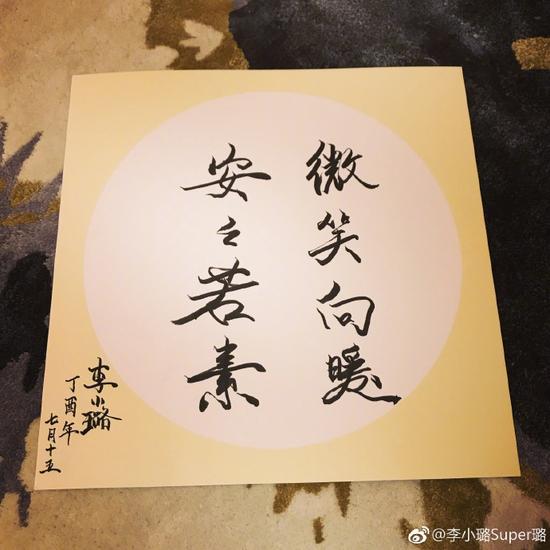 微笑向暖
安之若素
李小璐
丁酉年
七月十五
@李小璐Super璐